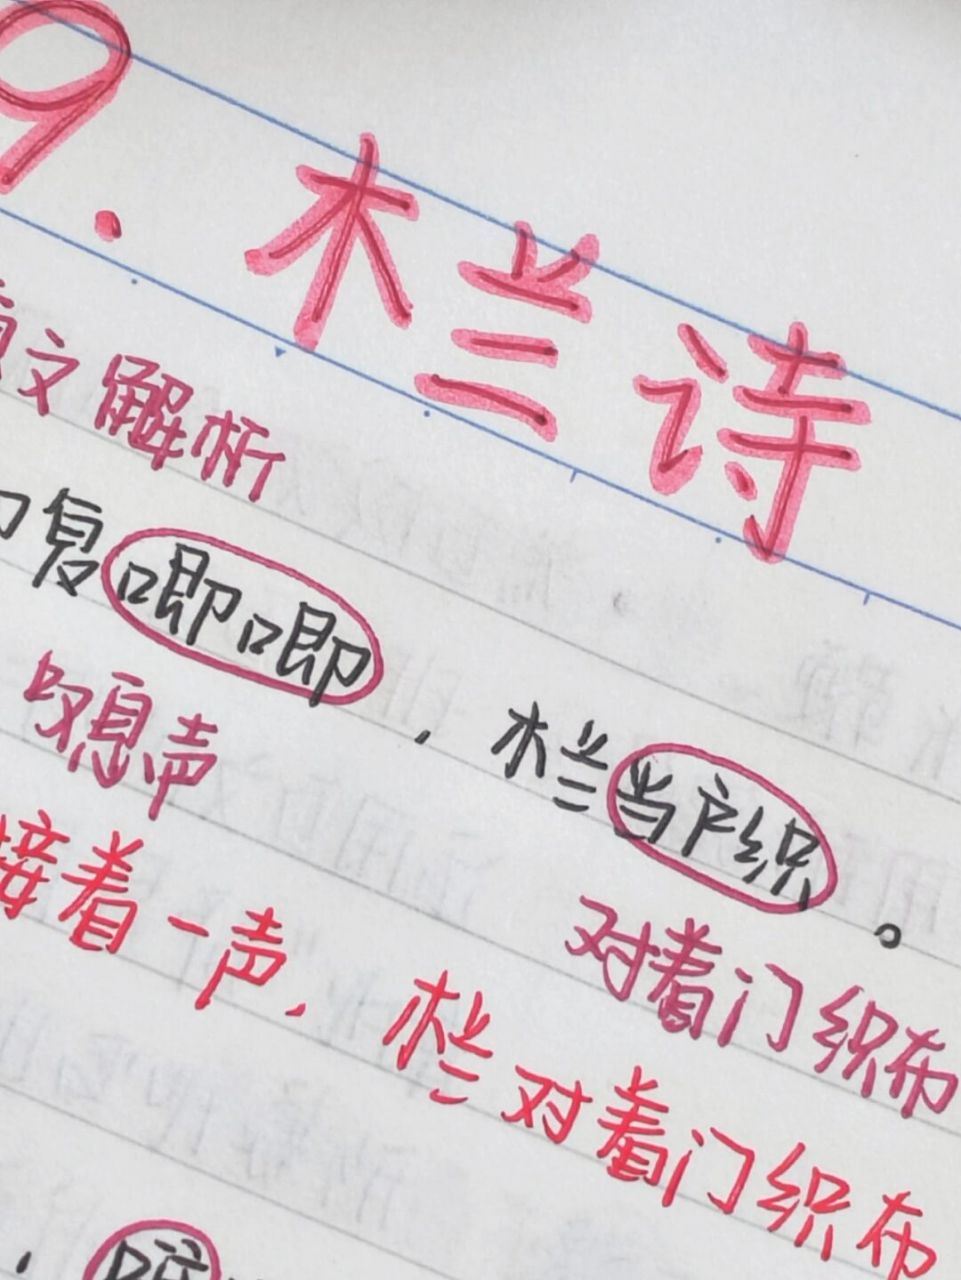 9.木兰诗
文解析
复唧唧,木兰当户织。
叹息声 对着门织布
接着一声,木兰对着门织布